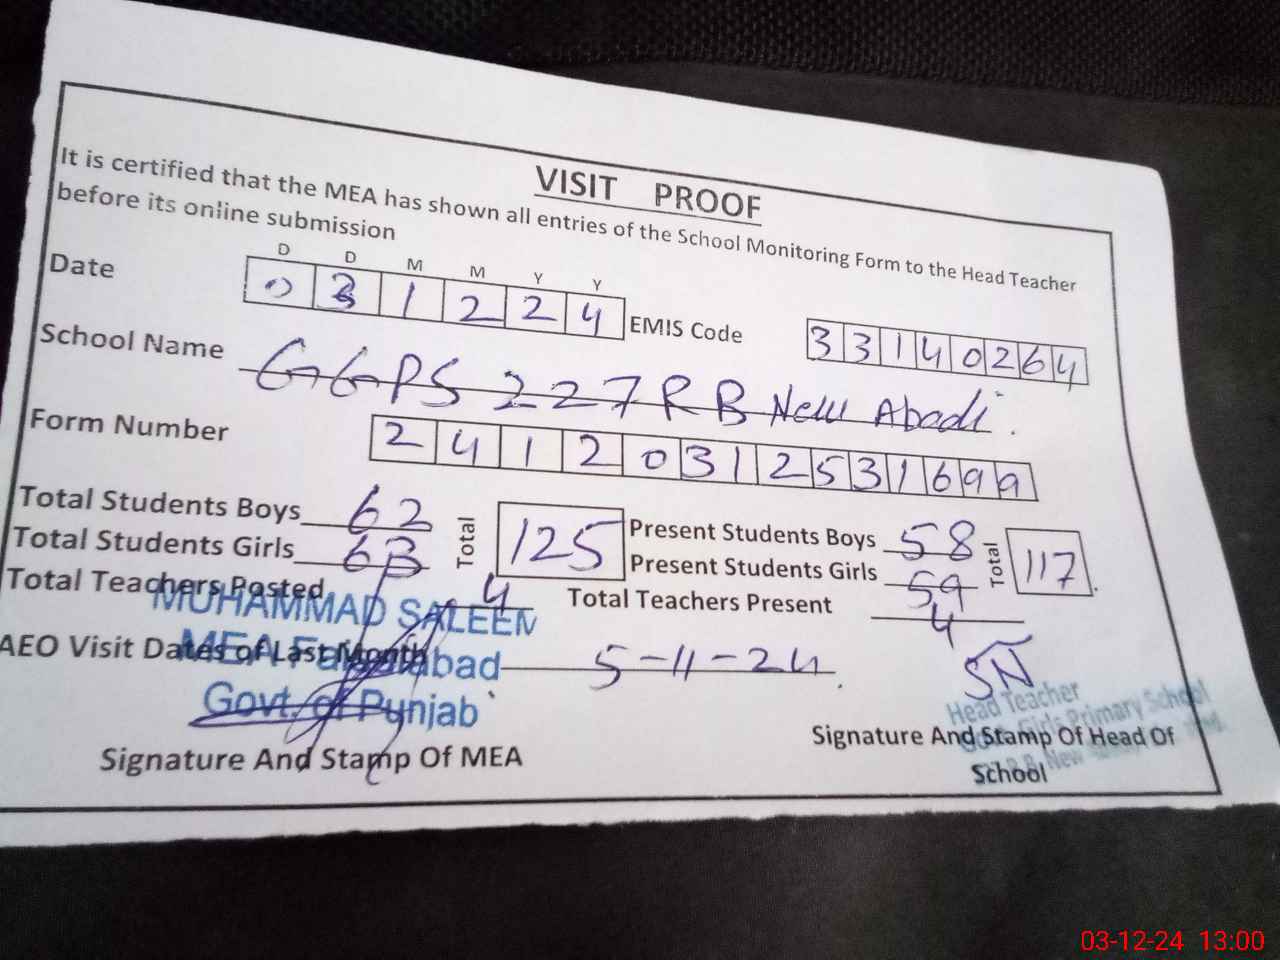 VISIT PROOF
It is certified that the MEA has shown all entries of the School Monitoring Form to the Head Teacher
before its online submission
D D M M Y Y
Date 0 3 1 2 2 4 EMIS Code 3 3 1 4 0 2 6 4
School Name GGPS 227 RB New Abadi.
Form Number 2 4 1 2 0 3 1 2 5 3 1 6 9 9
Total Students Boys 62 Total 125 Present Students Boys 58 Total 117
Total Students Girls 63 Present Students Girls 59
Total Teachers Posted 4 Total Teachers Present 4
MUHAMMAD SALEEM
AEO Visit Dates of Last Month 5-11-24
MEA Faisalabad
Govt. of Punjab
SN
Head Teacher
Girls Primary School
New
Signature And Stamp Of MEA
Signature And Stamp Of Head Of
School
03-12-24 13:00